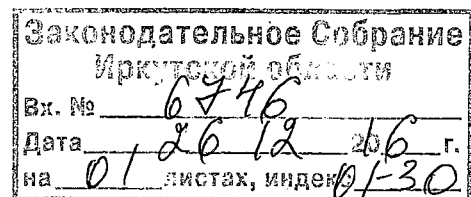 Законодательное Собрание
Иркутской области
Вх. № 6746
Дата 26 12 2016 г.
на 01 листах, индекс 01-30